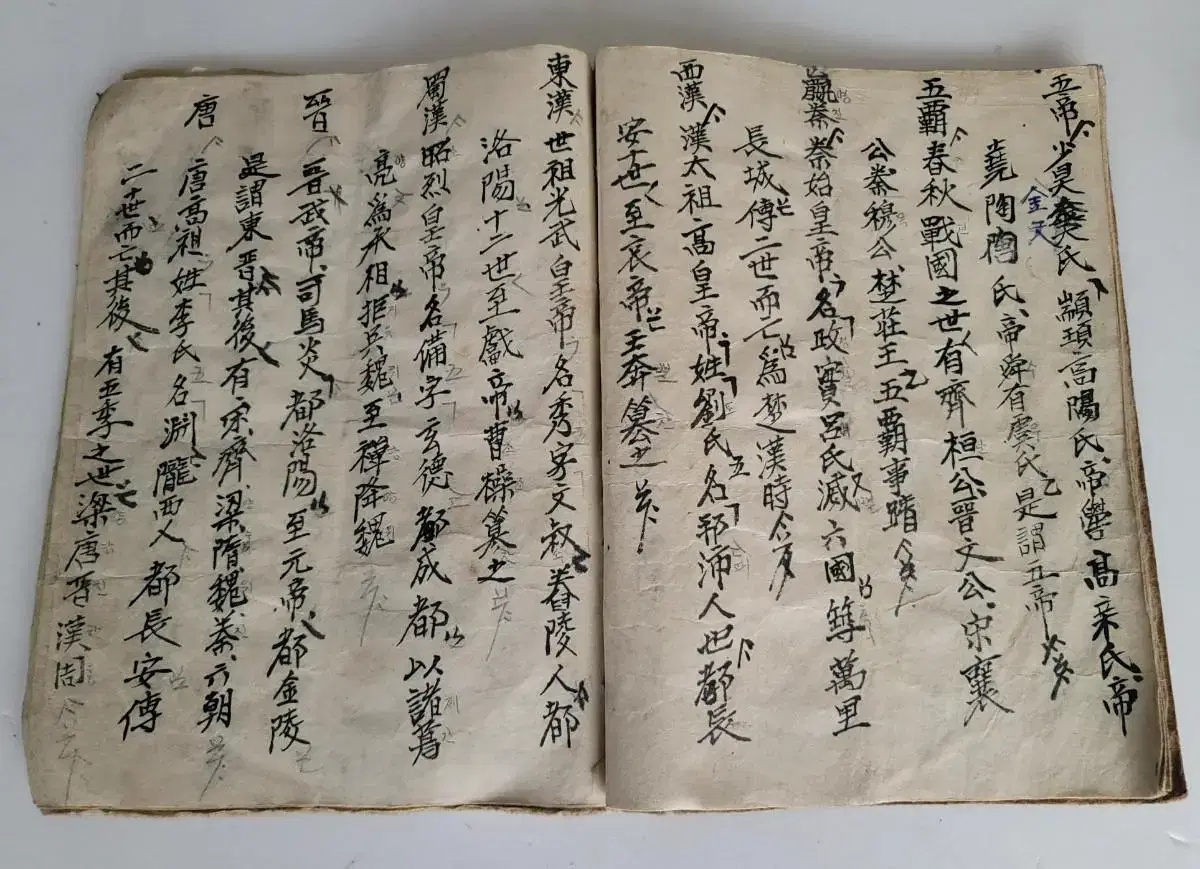 五帝 少昊金天氏 顓頊高陽氏 帝嚳高辛氏 帝
堯陶陶氏 帝舜有虞氏 是謂五帝
五覇 春秋戰國之世 有齊桓公 晋文公 宋襄
公 秦穆公 楚莊王 五覇事
嬴秦 秦始皇帝 名政 實呂氏 滅六國 築萬里
長城 傳二世而亡 爲楚漢時
西漢 漢太祖高皇帝 姓劉氏 名邦 沛人也 都長
安 十世至哀帝 王莽簒之
東漢 世祖光武皇帝 名秀 字文叔 舂陵人 都
洛陽 十二世至獻帝 曹操簒之
蜀漢 昭烈皇帝 名備 字玄德 都成都 以諸葛
亮爲丞相 拒兵魏 至禪降魏
晋 晋武帝 司馬炎 都洛陽 至元帝 都金陵
是謂東晋 其後有宋 齊 梁 隋 魏 秦 六朝
唐 唐高祖 姓李氏 名淵 隴西人 都長安 傳
二十世而亡 其後有五季之世 梁唐晋漢周